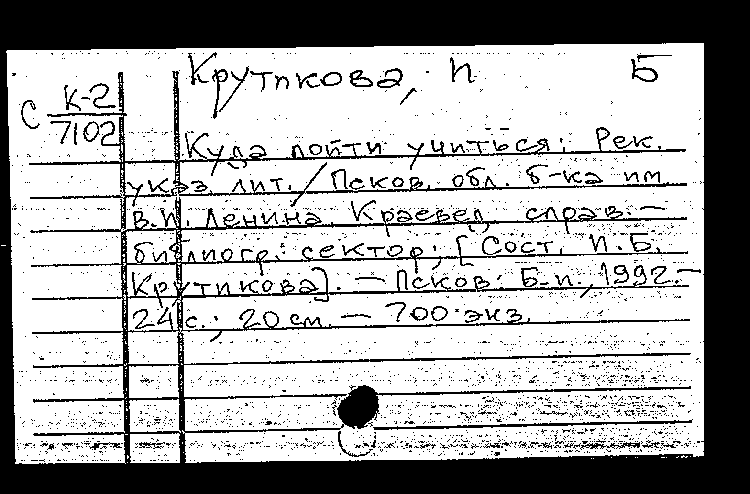 Крутикова, И Б
С К-2
7102
Куда пойти учиться: Рек.
указ. лит. / Псков. обл. б-ка им.
В.И. Ленина. Краевед. справ.-
библиогр. сектор; [Сост. И.Б.
Крутикова]. — Псков: Б.и., 1992.—
24 с.; 20 см. — 700 экз.